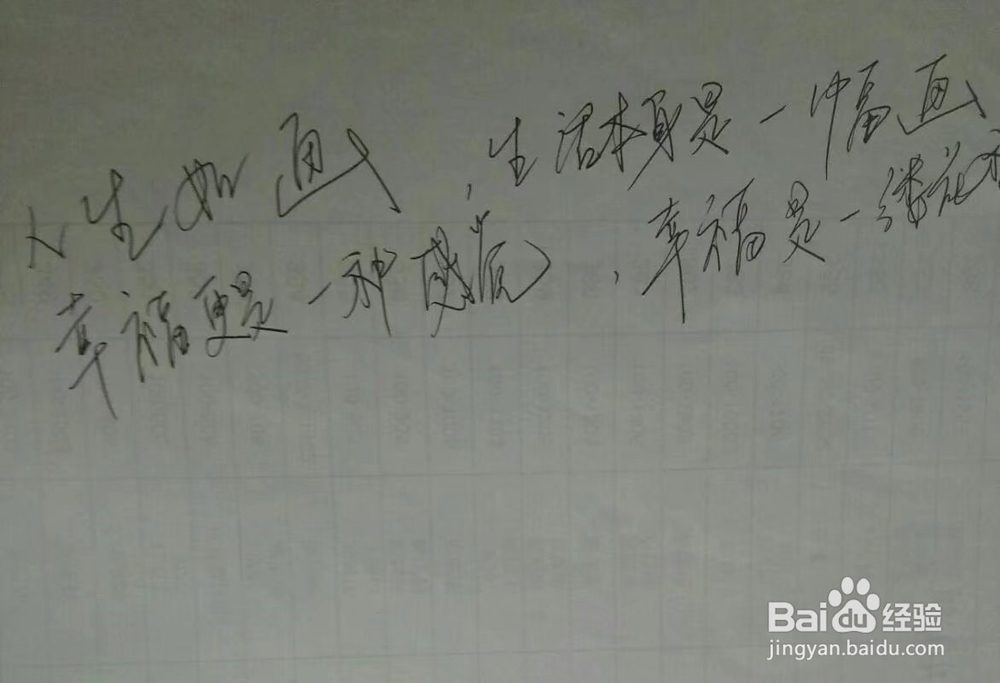 人生如画,生活本身是一幅画
幸福更是一种感觉,幸福是一缕花香
Bai du 经验
jingyan.baidu.com